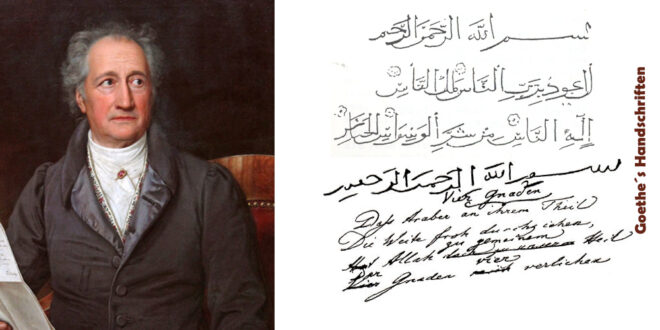 بسم الله الرّحمن الرّحيم
اعوذ بربّ النّاس ملك النّاس
إله النّاس من شرّ الوسواس الخنّاس
بسم الله الرحمن الرحيم
Vier Gnaden
Dass Araber an ihrem Theil
Die Weite froh durchziehen,
zu gemeinem
Hat Allah Heil
Der vier
Vier Gnaden verliehen
Goethe´s Handschriften